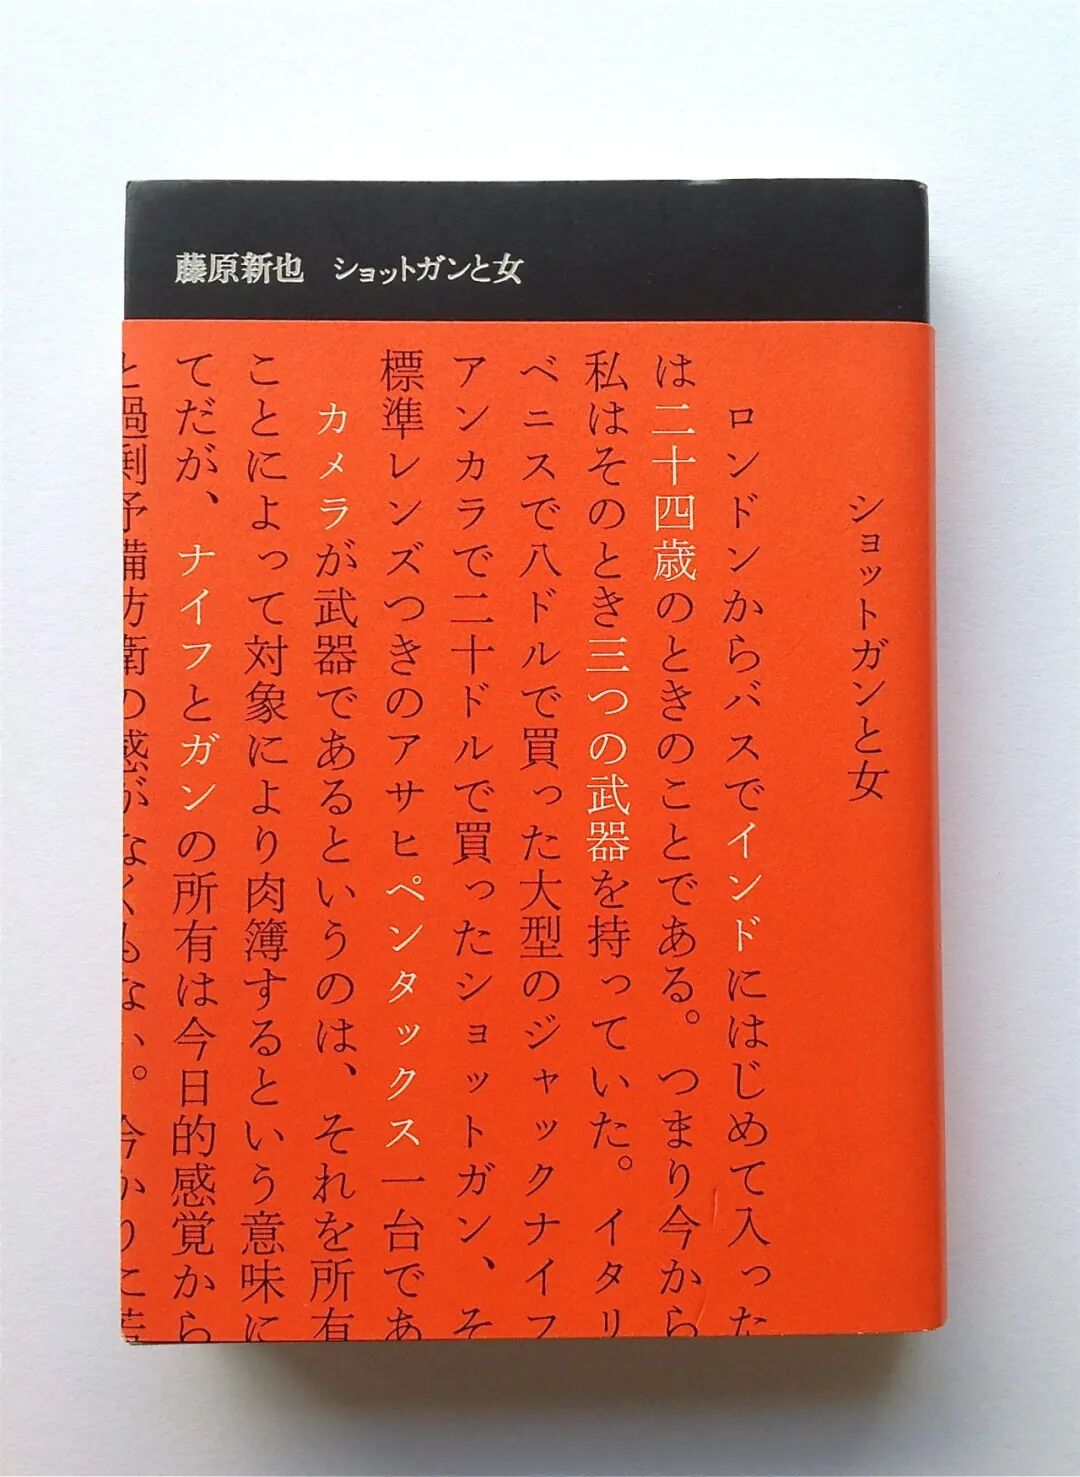 藤原新也 ショットガンと女
ショットガンと女
ロンドンからバスでインドにはじめて入った
は二十四歳のときのことである。つまり今から
私はそのとき三つの武器を持っていた。イタリ
ベニスで八ドルで買った大型のジャックナイフ
アンカラで二十ドルで買ったショットガン、そ
標準レンズつきのアサヒペンタックス一台であ
カメラが武器であるというのは、それを所有
ことによって対象により肉簿するという意味に
てだが、ナイフとガンの所有は今日的感覚から
と過剰予備防衛の感がなくもない。今かりに若